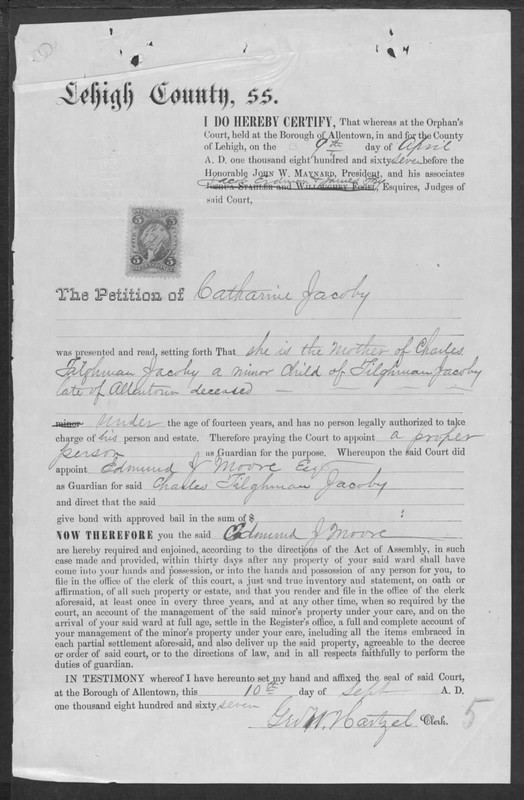 Lehigh County, ss.
I DO HEREBY CERTIFY, That whereas at the Orphan's
Court, held at the Borough of Allentown, in and for the County
of Lehigh, on the 9th day of April
A. D. one thousand eight hundred and sixty seven before the
Honorable JOHN W. MAYNARD, President, and his associates
Jacob Erdman & James Fry
JOSHUA STAHLER and WILLOUGHBY FOGEL, Esquires, Judges of
said Court,
5 5
The Petition of Catharine Jacoby
was presented and read, setting forth That she is the Mother of Charles
Tilghman Jacoby a minor Child of Tilghman Jacoby
late of Allentown deceased
minor under the age of fourteen years, and has no person legally authorized to take
charge of his person and estate. Therefore praying the Court to appoint a proper
person as Guardian for the purpose. Whereupon the said Court did
appoint Edmund J Moore Esq
as Guardian for said Charles Tilghman Jacoby
and direct that the said
give bond with approved bail in the sum of $ :
NOW THEREFORE you the said Edmund J Moore
are hereby required and enjoined, according to the directions of the Act of Assembly, in such
case made and provided, within thirty days after any property of your said ward shall have
come into your hands and possession, or into the hands and possession of any person for you, to
file in the office of the clerk of this court, a just and true inventory and statement, on oath or
affirmation, of all such property or estate, and that you render and file in the office of the clerk
aforesaid, at least once in every three years, and at any other time, when so required by the
court, an account of the management of the said minor's property under your care, and on the
arrival of your said ward at full age, settle in the Register's office, a full and complete account of
your management of the minor's property under your care, including all the items embraced in
each partial settlement aforesaid, and also deliver up the said property, agreeable to the decree
or order of said court, or to the directions of law, and in all respects faithfully to perform the
duties of guardian.
IN TESTIMONY whereof I have hereunto set my hand and affixed the seal of said Court,
at the Borough of Allentown, this 10th day of Sept A. D.
one thousand eight hundred and sixty seven
Geo W. Hartzel Clerk.
5